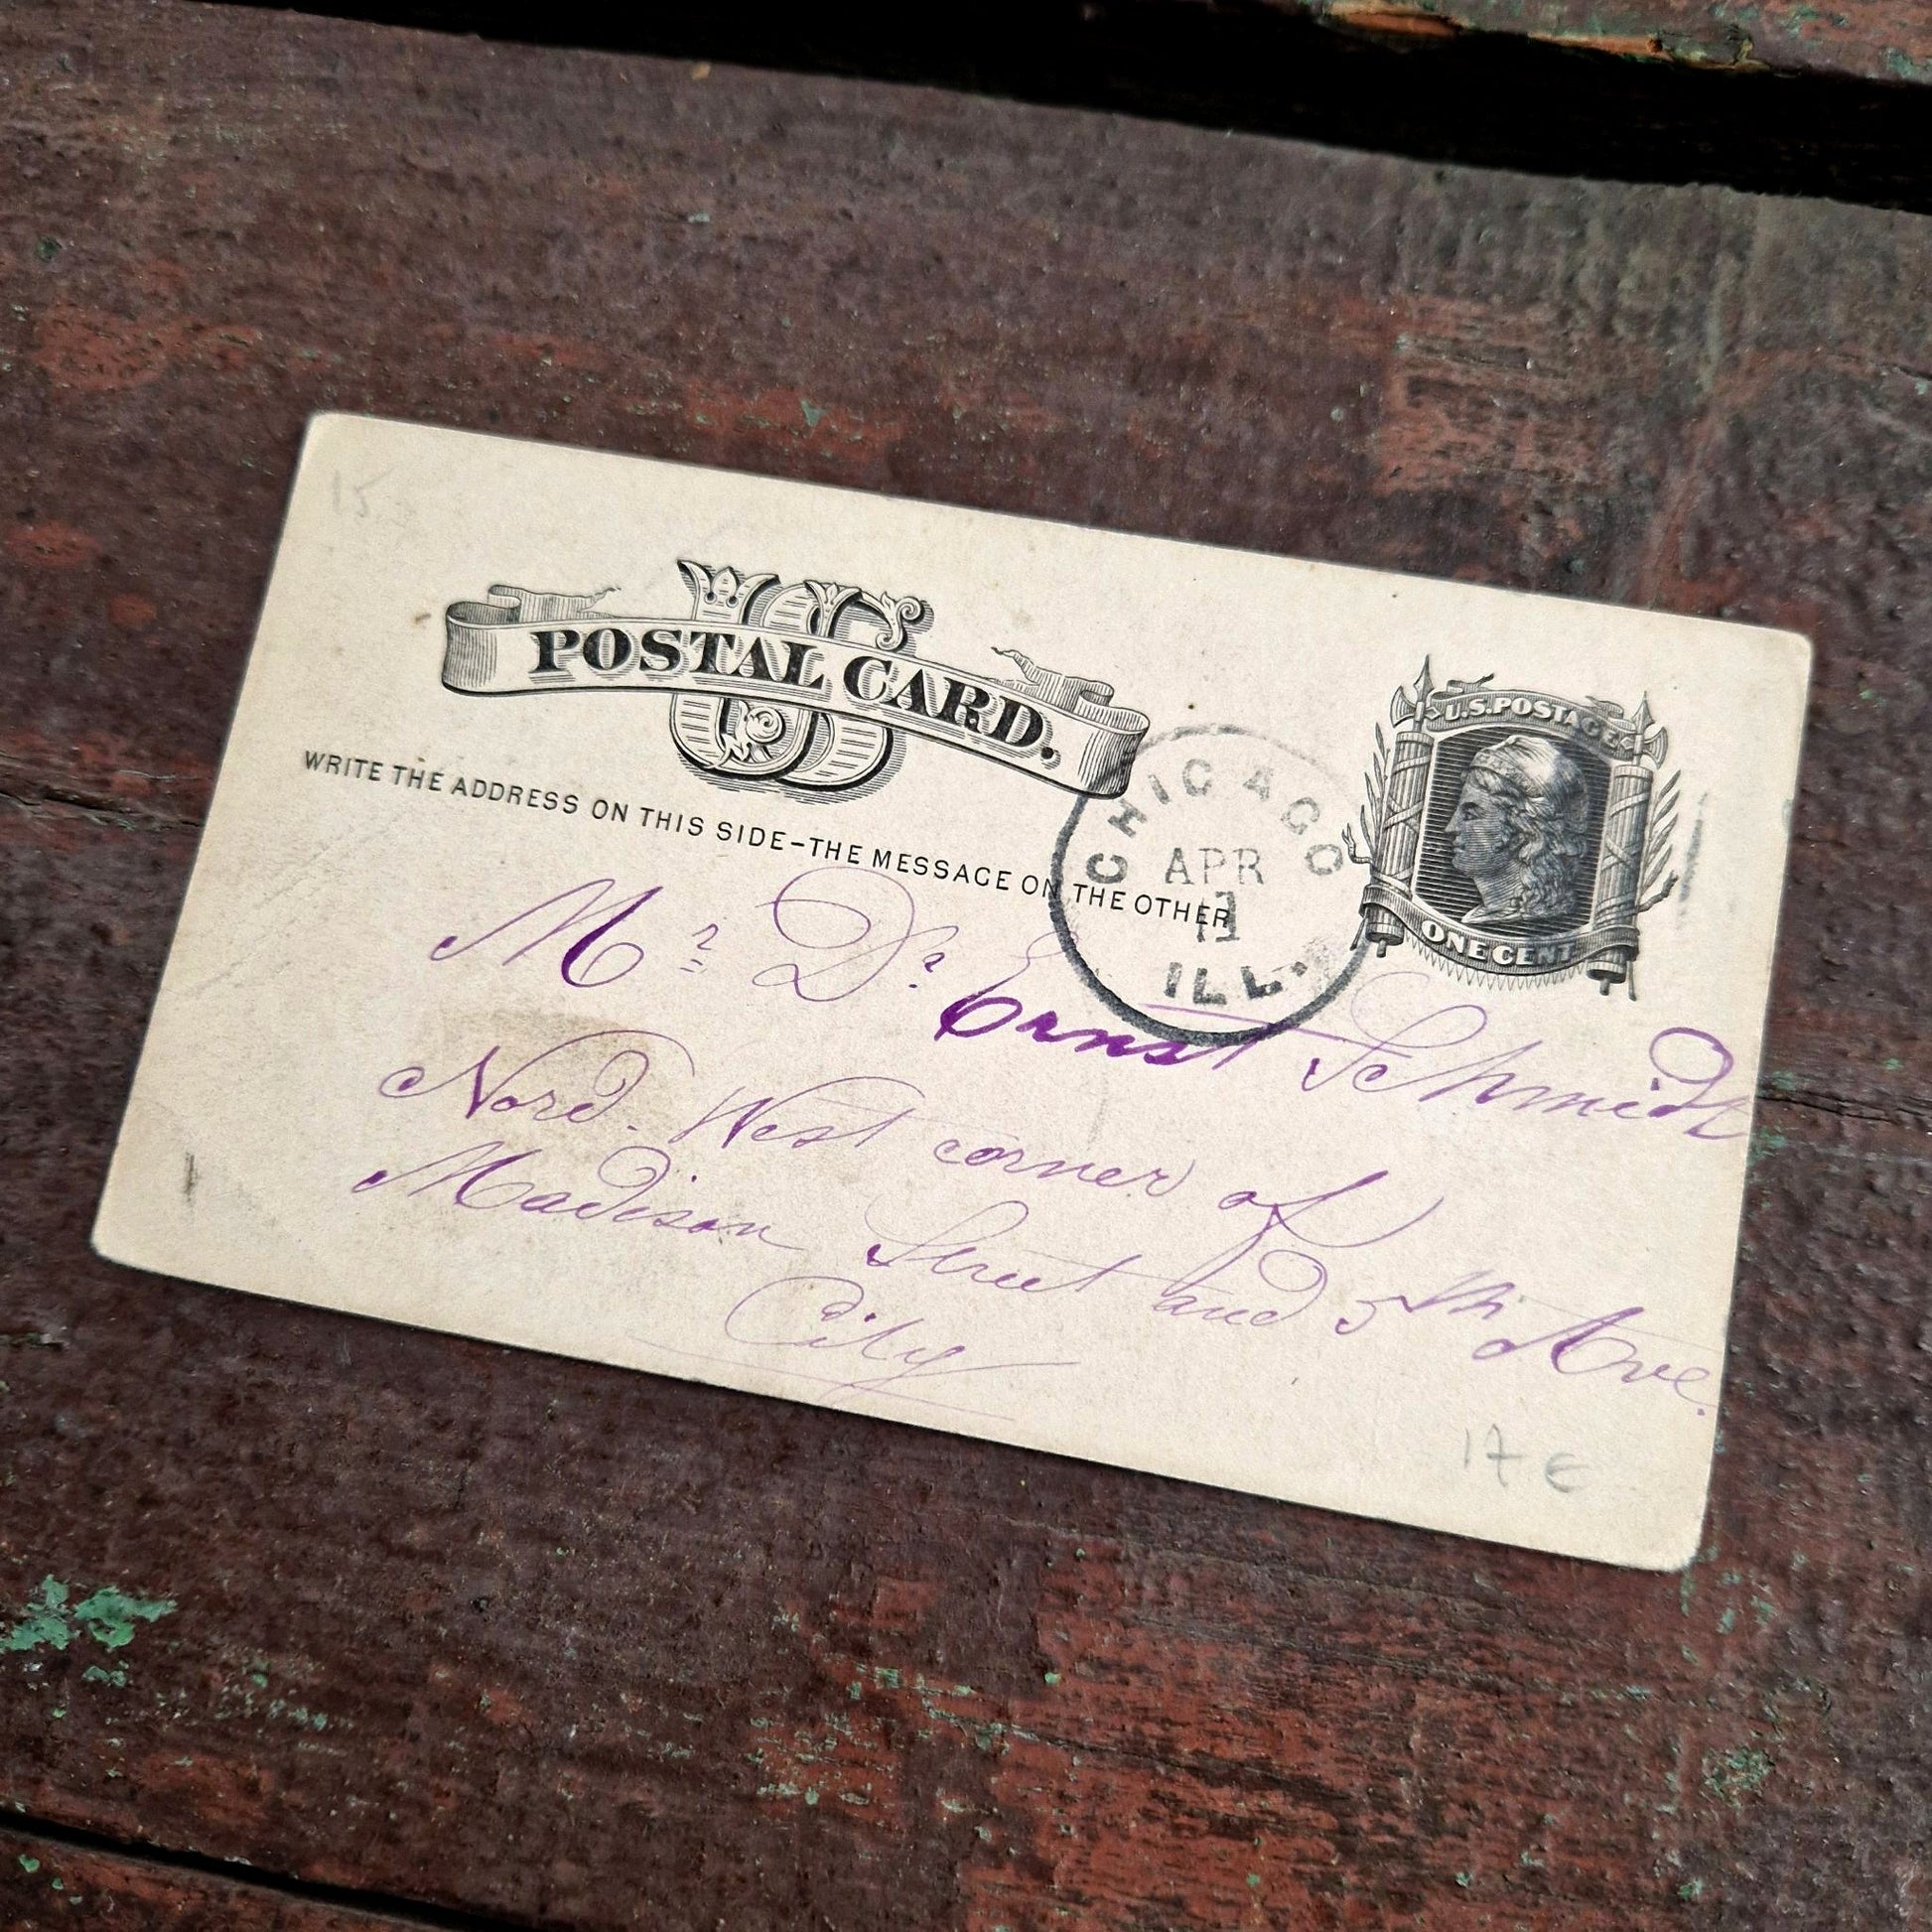 15
US
POSTAL CARD.
U.S.POSTAGE
WRITE THE ADDRESS ON THIS SIDE-THE MESSAGE ON THE OTHER
CHICAGO
APR
ILL.
ONE CENT
Mr Dr. Ernst Schmidt
Nord. West corner of
Madison Street and 5th Ave.
City
17 €